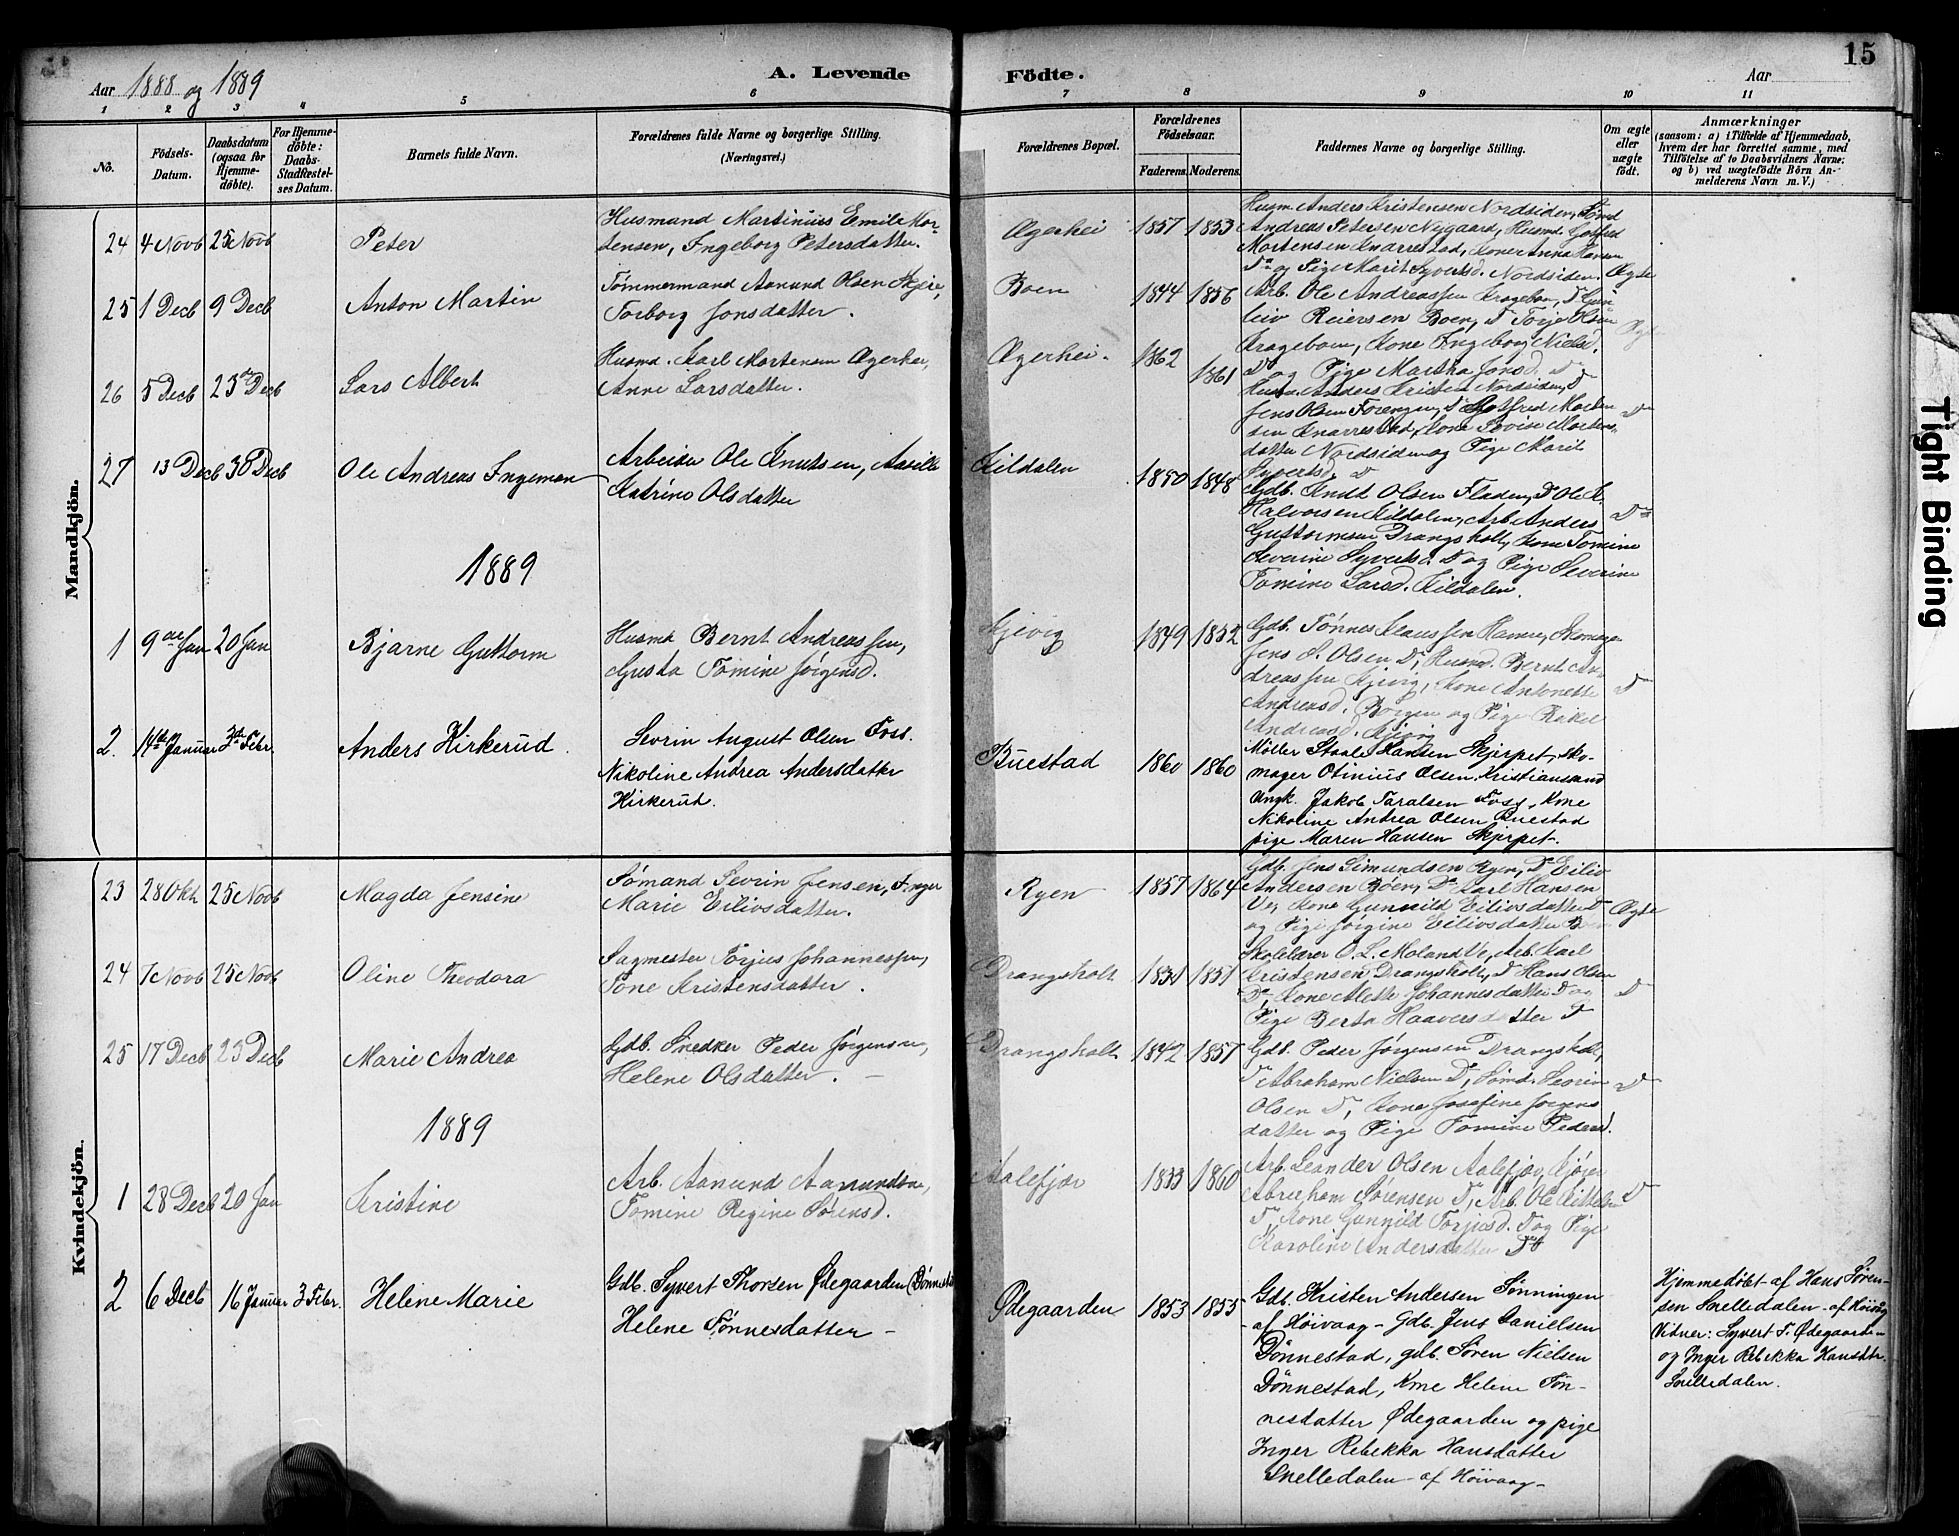 Aar 1888 og 1889
A. Levende
Födte.
Aar
15
1 2 3 4 5 6 7 8 9 10 11
No.
Födsels-
Datum.
Daabsdatum
(ogsaa for
Hjemme-
döbte).
For Hjemme-
döbte:
Daabs-
Stadfæstel-
ses Datum.
Barnets fulde Navn.
Forældrenes fulde Navne og borgerlige Stilling.
(Næringsvei.)
Forældrenes Bopæl.
Forældrenes
Födselsaar.
Faderens. Moderens.
Faddernes Navne og borgerlige Stilling.
Om ægte
eller
uægte
födt.
Anmærkninger
(saasom: a) i Tilfælde af Hjemmedaab,
hvem der har forrettet samme, med
Tilföielse af to Daabsvidners Navne;
og b) ved uægtefödte Börn An-
melderens Navn m. V.)
Mandkjön.
24 4 Novb 25 Novb
Peter
Husmand Martinius Emil Mor-
tensen, Ingeborg Petersdatter.
Ægerhei
1857 1853
Husm. Anders Kristensen Nordsiden, Sømd
Andreas Petersen Nygaard, Husmd. Gotfred
Mortensen Knarrestad, Kone Anna Hansen
Do og Pige Marit Syvertsd. Nordsiden.
Ægte
25 1 Decb 9 Decb
Anton Martin
Tømmermand Aanund Olsen Skjere,
Torborg Jonsdatter.
Boen
1844 1856
Arb. Ole Andreassen Krageboen, Do Gun
leiv Reiersen Boen, Do Torje Olsen
Krageboen, Kone Ingeborg Nielsd.
Do og Pige Martha Jonsd. Do
Ægte
26 5 Decb 23 Decb
Lars Albert
Husmd. Karl Mortensen Ægerhei,
Anne Larsdatter.
Ægerhei.
1862 1861
Husm. Anders Kristen Nordsiden, Do
Jens Olsen Forengen, Do Gotfred Morten
sen Knarrestad, Kone Lovise Mortens-
datter Nordsiden og Pige Marit
Syvertsd. Do
Do
27 13 Decb 30 Decb
Ole Andreas Ingeman
Arbeider Ole Knutsen, Aasille
Katrine Olsdatter
Kildalen
1850 1848
Gdb. Knut Olsen Fladen, Do Ole K.
Halvorsen Kildalen, Arb. Anders
Guttormsen Drangsholt, Kone Tomine
Severine Syvertsd. Do og Pige Severine
Tomine Larsd. Kildalen.
Do
1889
1 9de Jan 20 Jan
Bjarne Guttorm
Husmd Bernt Andreassen,
Gusta Tomine Jørgensd.
Kjevig
1849 1852
Gdb. Tønnes Klaussen Hamre,
Jens S. Olsen Do, Husmd. Bernt An-
dreassen Kjevig, Kone Antonette
Andreasd. Borgen og Pige Rakel
Andreasd. Kjevig
Do
2. 14de Januar 3de Febr.
Anders Kirkerud.
Sevrin August Olsen Foss.
Nikoline Andrea Andersdatter
Kirkerud.
Buestad
1860 1860
Møller Staale Hansen Skjerpet, sko-
mager Otinius Olsen, Kristianssand
Ungk. Jakob Taralsen Foss, Kone
Nikoline Andrea Olsen Buestad
pige Maren Hansen Skjerpet.
Kvindekjön.
23 28 Okt 25 Novb
Magda Jensine
Sømand Sevrin Jensen, Inger
Marie Eilivsdatter.
Ryen
1857 1864
Gdb. Jens Simundsen Ryen, Do Eiliv
Andersen Boen, Do Karl Hansen
Ve, Kone Gunnild Eilivsdatter Do
og Pige Jørgine Eilivsdatter Boen
Ægte
24 7 Novb 25 Novb
Oline Theodora
Sagmester Torjus Johannessen,
Tone Kristensdatter.
Drangsholt
1851
Skolelærer O. L. Moland Ve, Arb. Karl
Kristensen Drangsholt, Do Hans Olsen
Do, Kone Alette Johannesdatter Do og
Pige Berta Haaversdatter Do
Do
25 17 Decb 23 Decb
Marie Andrea
Gdb. Snedker Peder Jørgensen,
Helene Olsdatter. –
Drangsholt
1842 1857
Gdb. Peder Jørgensen Drangsholt,
Do Abraham Nielsen Do, Sømd. Sevrin
Olsen Do, Kone Josefine Jørgens
datter og Pige Tomine Pedersd.
Do
1889
1 28 Decb 20 Jan
Kristine
Arb. Aanund Aanundsen,
Tomine Regine Sørensd.
Aalefjær
1833 1860
Arb. Leander Olsen Aalefjær,
Abraham Sørensen Do, Arb. Ole
Do, Kone Gunnild Torjusd. Do og Pige
Karoline Andersdatter Do
Do
2 6 Decb 16 Januar 3 Febr.
Helene Marie
Gdb. Syvert Thorsen Ødegaarden (Dønnestad
Helene Tønnesdatter –
Ødegaarden
1853 1855
Gdb. Kristen Andersen Tønningen
– af Høivaag – Gdb. Jens Danielsen
Dønnestad, gdb. Søren Nielsen
Dønnestad, Kone Helene Tøn-
nesdatter Ødegaarden og pige
Inger Rebekka Hansdatter
Snelledalen – af Høivaag –
Hjemmedøbt af Hans Søren-
sen Snelledalen – af Høivåg
Vidner: Syvert T. Ødegaarden
og Inger Rebekka Hansdtr.
Snelledalen.
Tight Binding